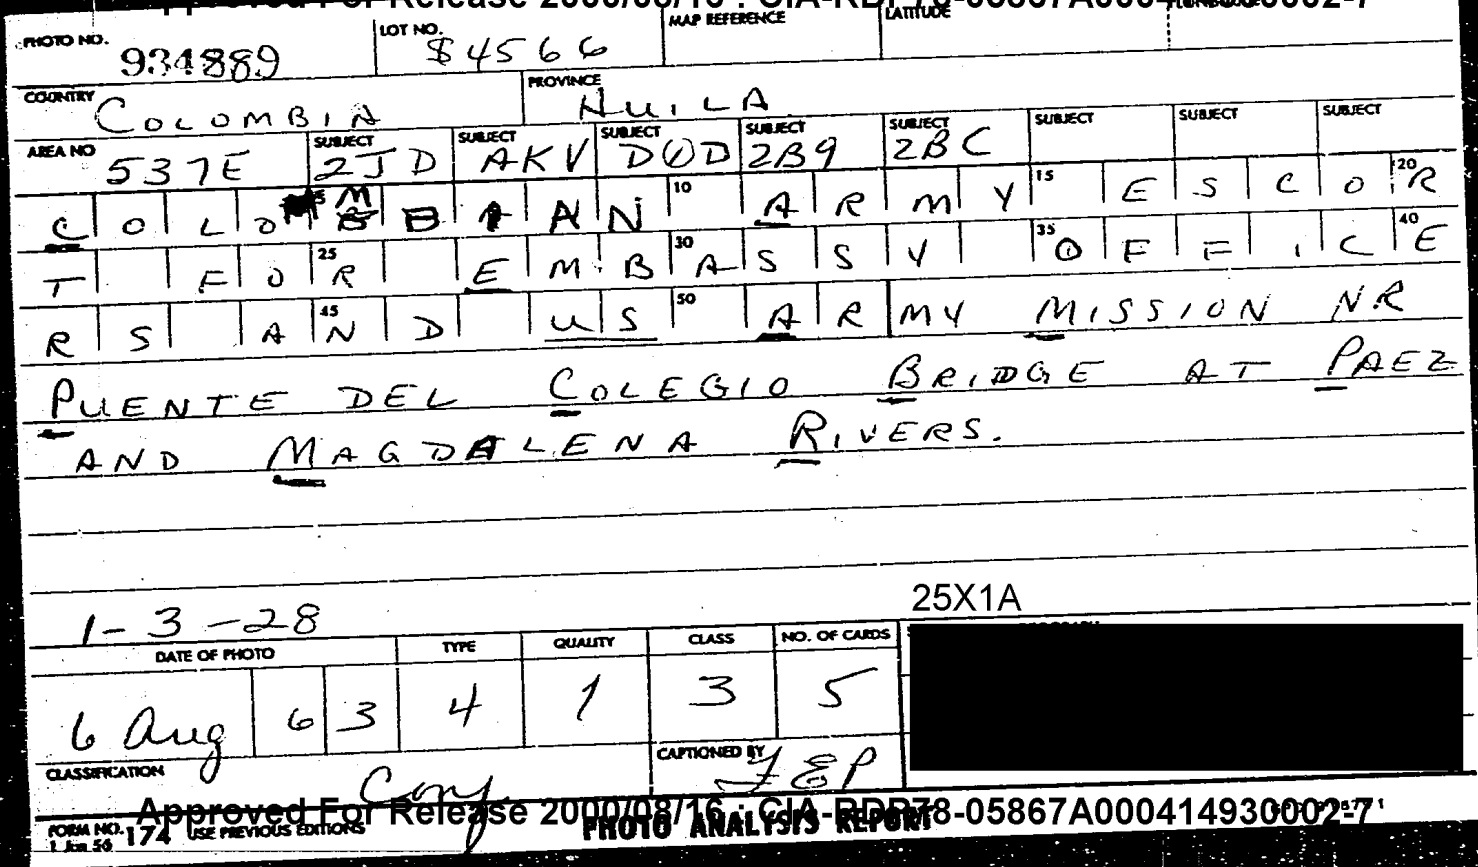 Approved For Release 2000/08/16 : CIA-RDP78-05867A000414930002-7
PHOTO NO. 934889 LOT NO. $4566 MAP REFERENCE LATITUDE
COUNTRY COLOMBIA PROVINCE HUILA
AREA NO 537E SUBJECT 2JD SUBJECT AKV SUBJECT D0D SUBJECT 2B9 SUBJECT 2BC SUBJECT SUBJECT SUBJECT
COLOMBIAN 10 ARMY 15 ESCOR 20
T FOR 25 EMBASSY 30 35 OFFICE 40
RS AND 45 US 50 ARMY MISSION NR
PUENTE DEL COLEGIO BRIDGE AT PAEZ
AND MAGDALENA RIVERS.
25X1A
1-3-28
DATE OF PHOTO TYPE QUALITY CLASS NO. OF CARDS
6 Aug 63 4 1 3 5
CLASSIFICATION Conf CAPTIONED BY JEP
Approved For Release 2000/08/16 : CIA-RDP78-05867A000414930002-7
FORM NO. 174 USE PREVIOUS EDITIONS PHOTO ANALYSIS REPORT
1 Jun 56